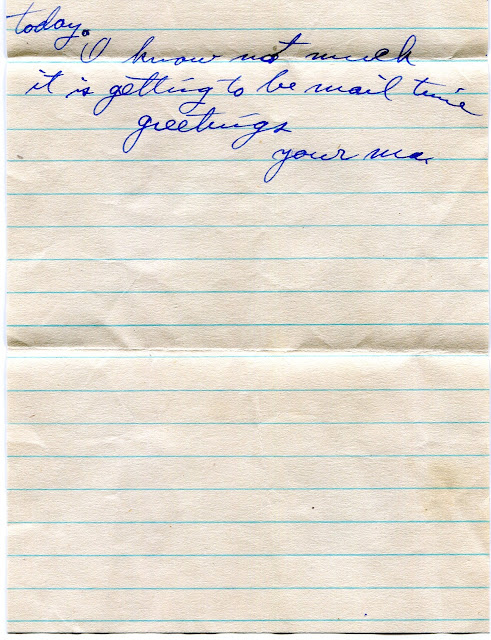 today.
I know not much
it is getting to be mail time
greetings
your ma.